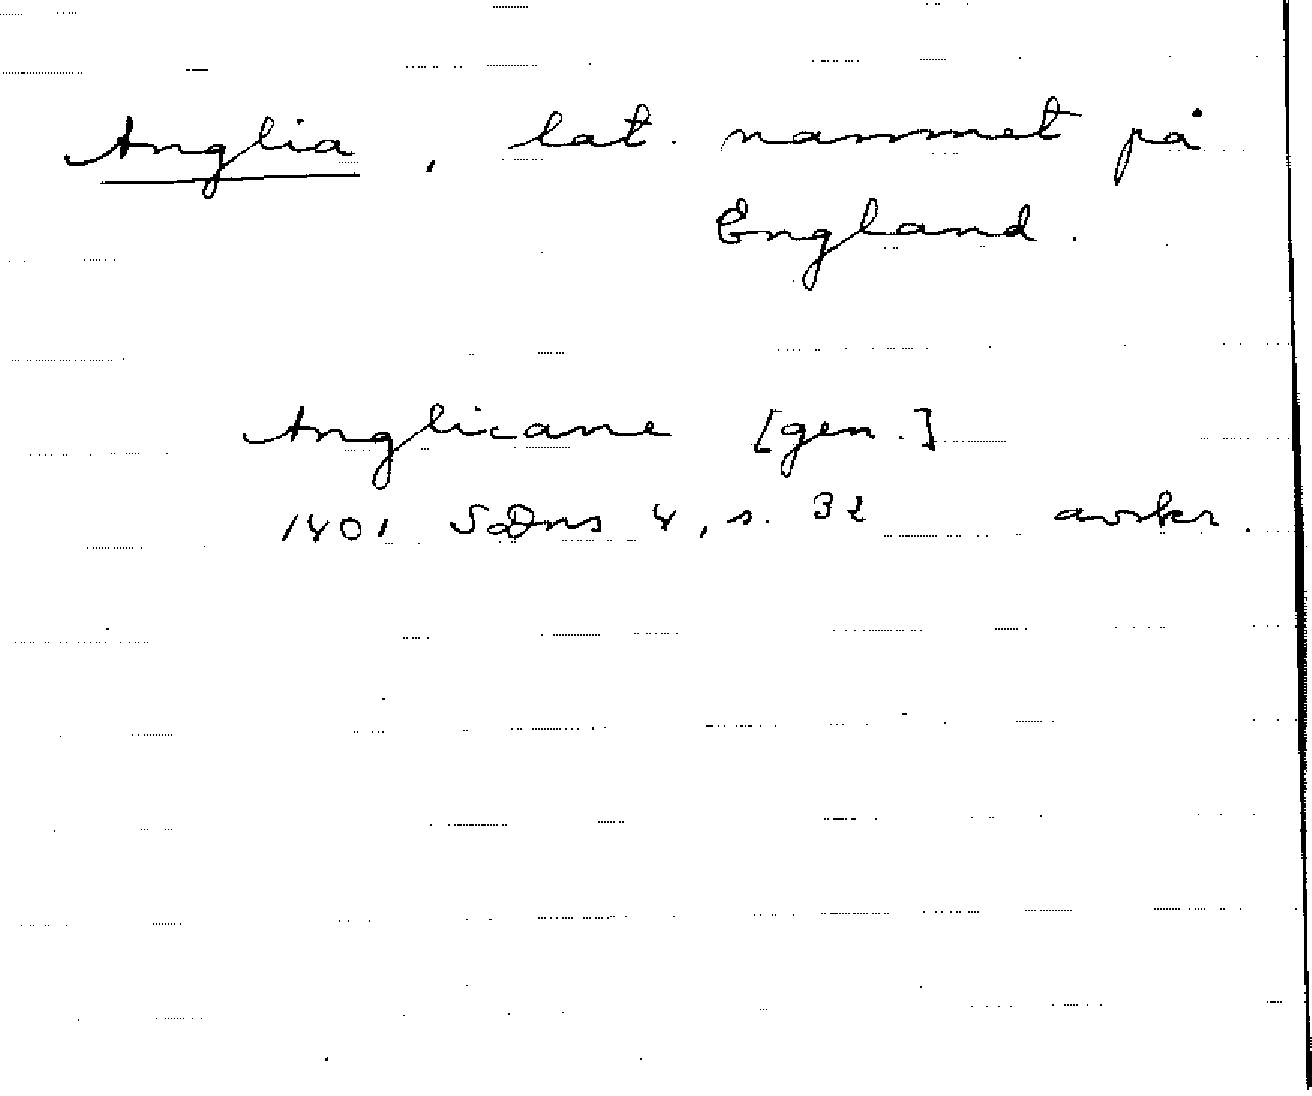 Anglia, lat. namnet på
England.
Anglicane [gen.]
1401 SDns 4, s. 32 avskr.